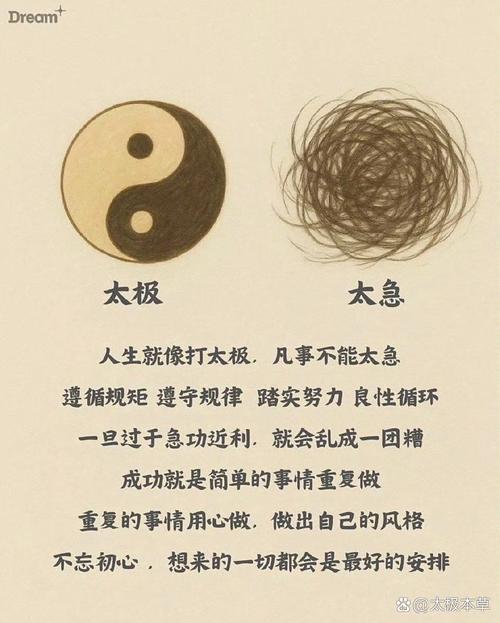 Dream+
太极 太急
人生就像打太极，凡事不能太急
遵循规矩 遵守规律 踏实努力 良性循环
一旦过于急功近利，就会乱成一团糟
成功就是简单的事情重复做
重复的事情用心做，做出自己的风格
不忘初心，想来的一切都会是最好的安排
@太极本草